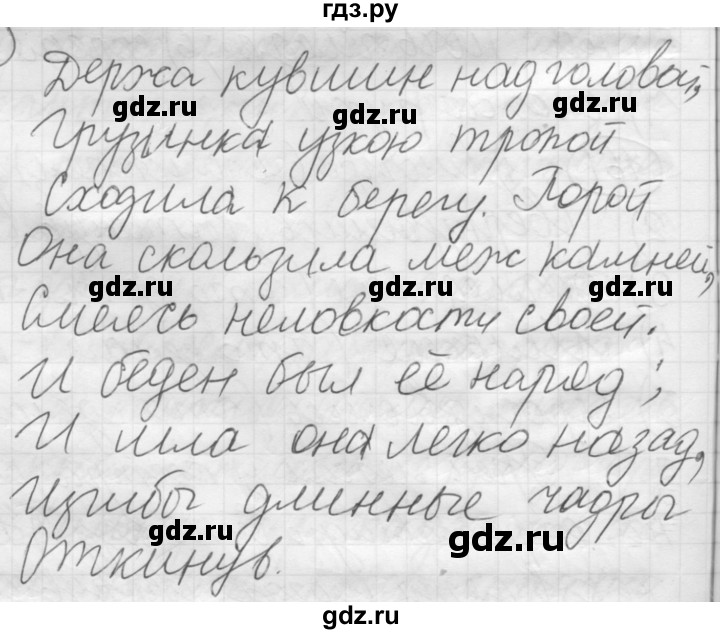 гдз.ру
Держа кувшин над головой,
gdz.ru gdz.ru gdz.ru
Грузинка узкою тропой
Сходила к берегу. Порой
Она скользила меж камней,
gdz.ru gdz.ru gdz.ru
Смеясь неловкости своей.
И беден был её наряд;
И шла она легко назад,
Изгибы длинные чадры
gdz.ru gdz.ru
Откинув.
gdz.ru